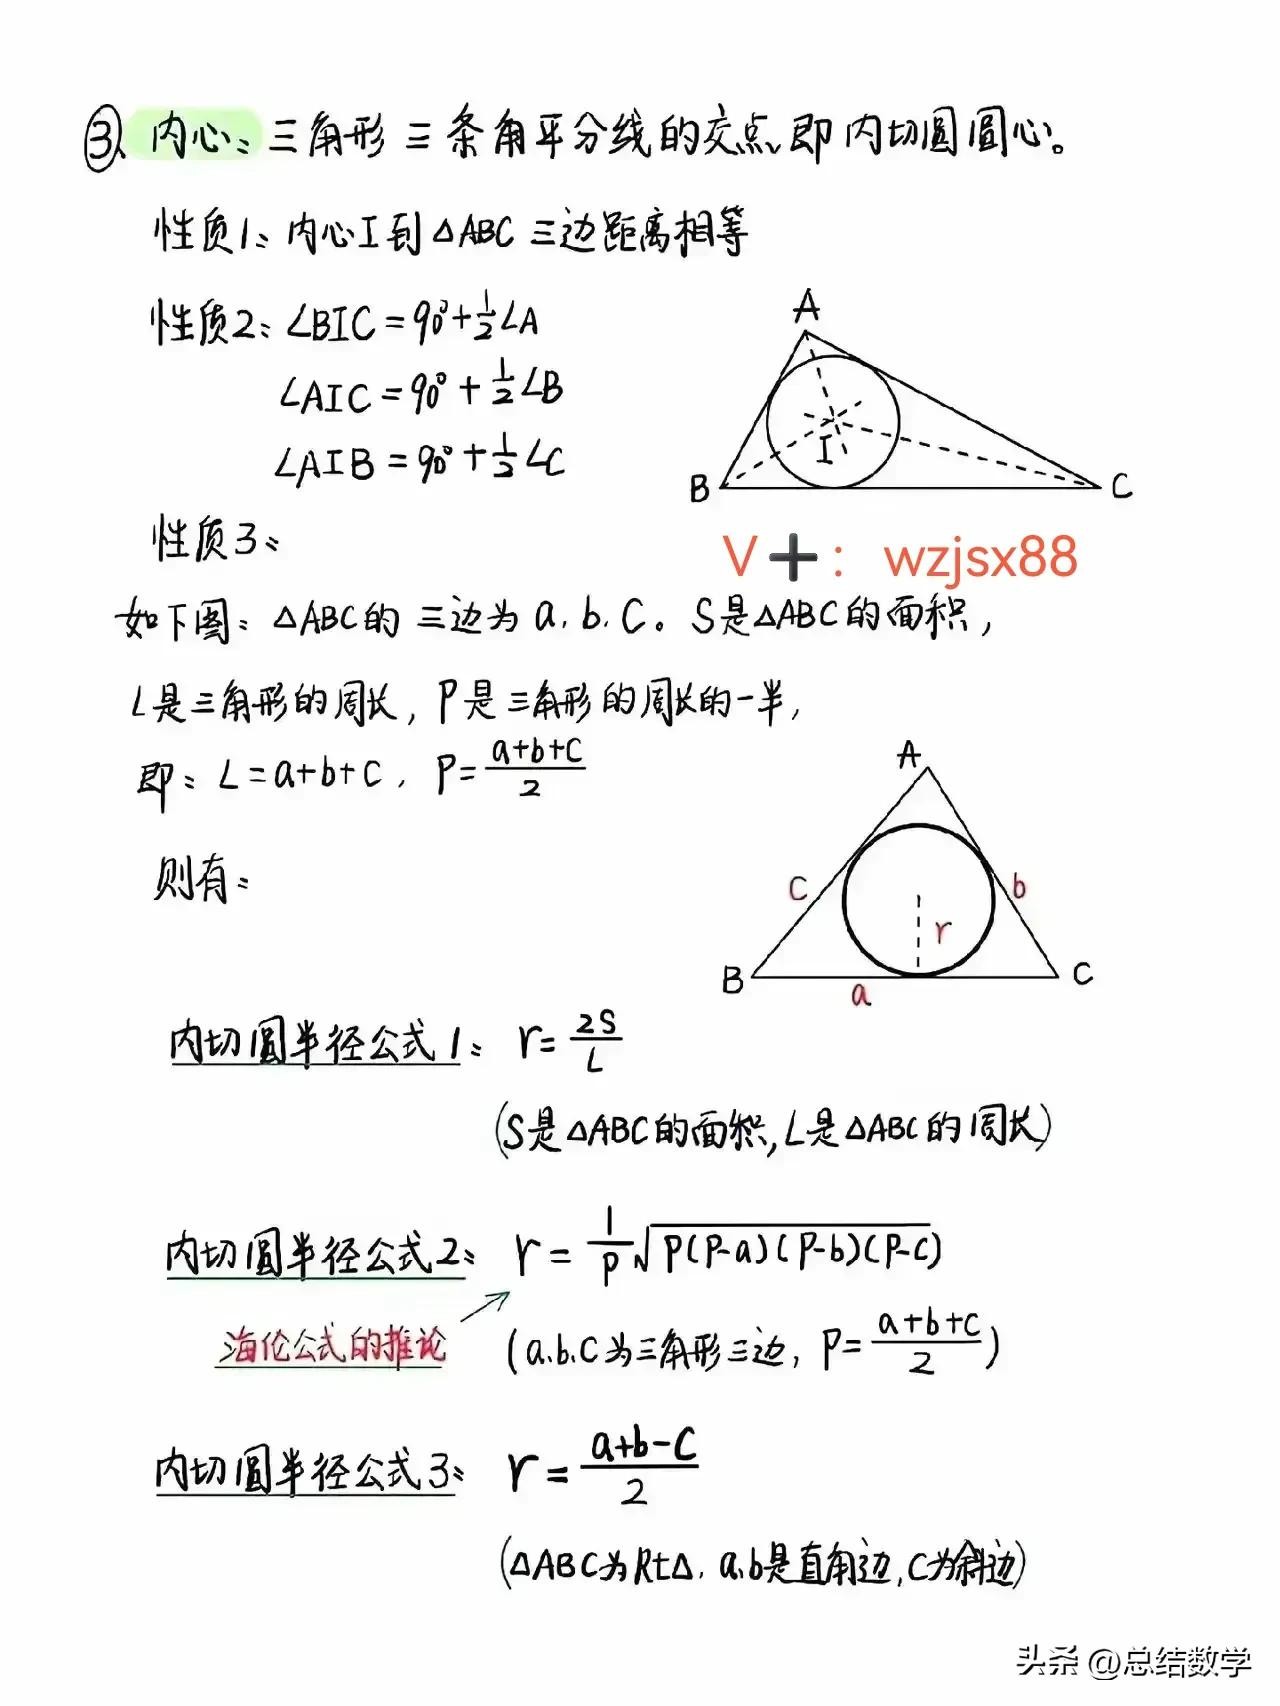 ③、内心：三角形三条角平分线的交点，即内切圆圆心。
性质1：内心I到△ABC三边距离相等
性质2：∠BIC=90°+½∠A
∠AIC=90°+½∠B
∠AIB=90°+½∠C
A
B
I
C
性质3：
V➕：wzjsx88
如下图：△ABC的三边为a.b.c。S是△ABC的面积，
L是三角形的周长，P是三角形的周长的一半，
即：L=a+b+c，P=(a+b+c)/2
则有：
A
c
b
r
B
a
C
内切圆半径公式1：r=2S/L
(S是△ABC的面积,L是△ABC的周长)
内切圆半径公式2：r=1/P√P(P-a)(P-b)(P-c)
海伦公式的推论
(a.b.c为三角形三边，P=(a+b+c)/2)
内切圆半径公式3：r=(a+b-c)/2
(△ABC为Rt△，a.b是直角边,c为斜边)
头条 @总结数学